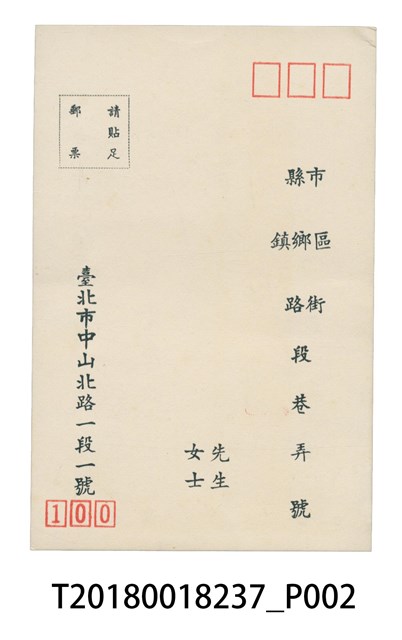 市縣
區鄉鎮
街路
段
巷
弄
號
先生
女士
請貼足
郵票
臺北市中山北路一段一號
100
T20180018237_P002